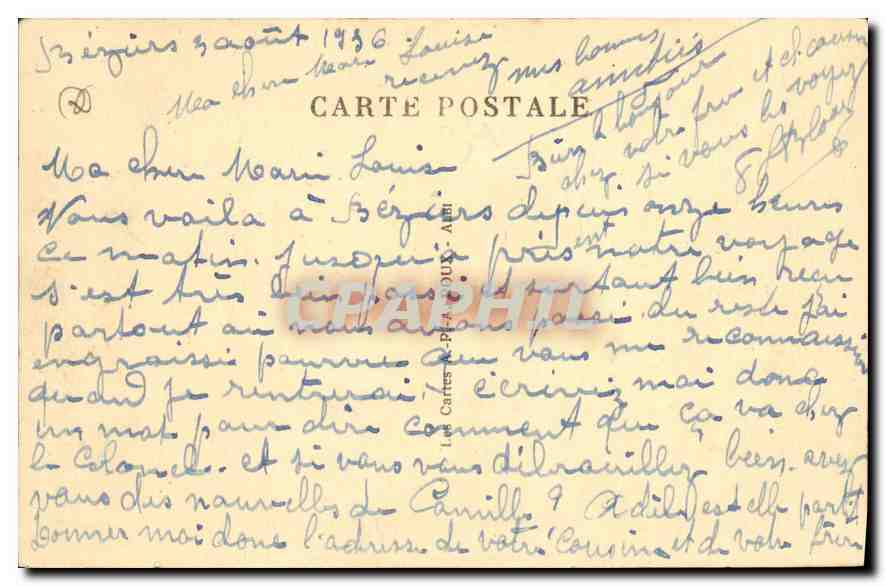 Béziers 3 août 1936
Ma chere Marie Louise
recevez mes bonnes
amitiés
CARTE POSTALE
Bien le bonjour
chez votre frere et et cousin
si vous les voyez
Ma chere Marie Louise
Nous voila à Béziers depuis onze heures
ce matin. Jusqu'a présent notre voyage
s'est très bien passé et partout bien reçu
partout ou nous avons passé. du reste j'ai
engraissé pourvu que vous me reconnaissiez
quand je rentrerai. écrivez moi donc
un mot pour dire comment que ça va chez
le Colonel. et si vous vous débrouillez bien. avez
vous des nouvelles de Camille ? Adèle est elle partit
Donner moi donc l'adresse de votre Cousin et de votre frère
Les Cartes A.-P.-A. POUX - ALBI
CPAPHIL